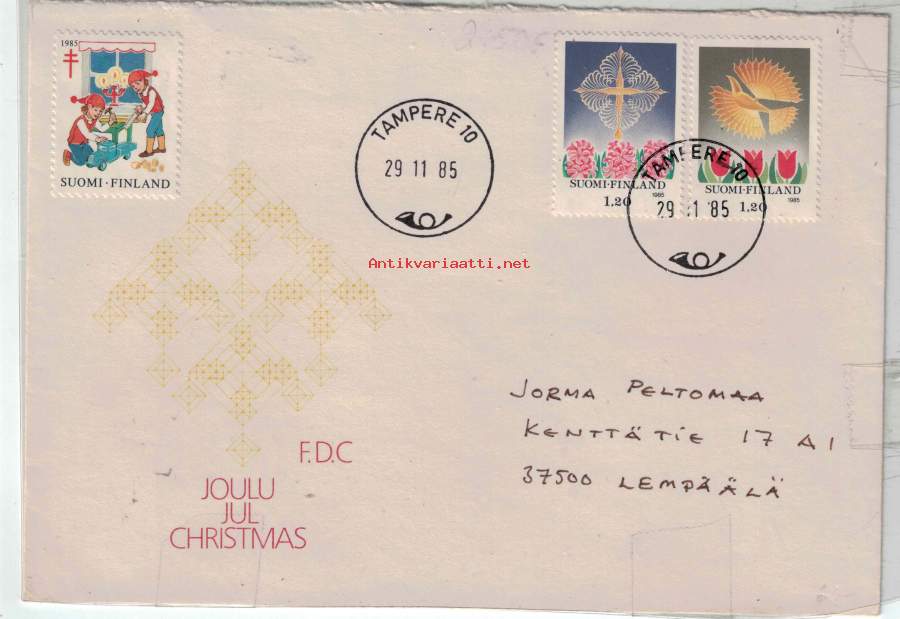 1985
SUOMI·FINLAND
TAMPERE 10
29 11 85
SUOMI·FINLAND
1985
1.20
SUOMI·FINLAND
1985
1.20
TAMPERE 10
29 11 85
Antikvariaatti.net
JORMA PELTOMAA
KENTTÄTIE 17 A1
37500 LEMPÄÄLÄ
F.D.C
JOULU
JUL
CHRISTMAS